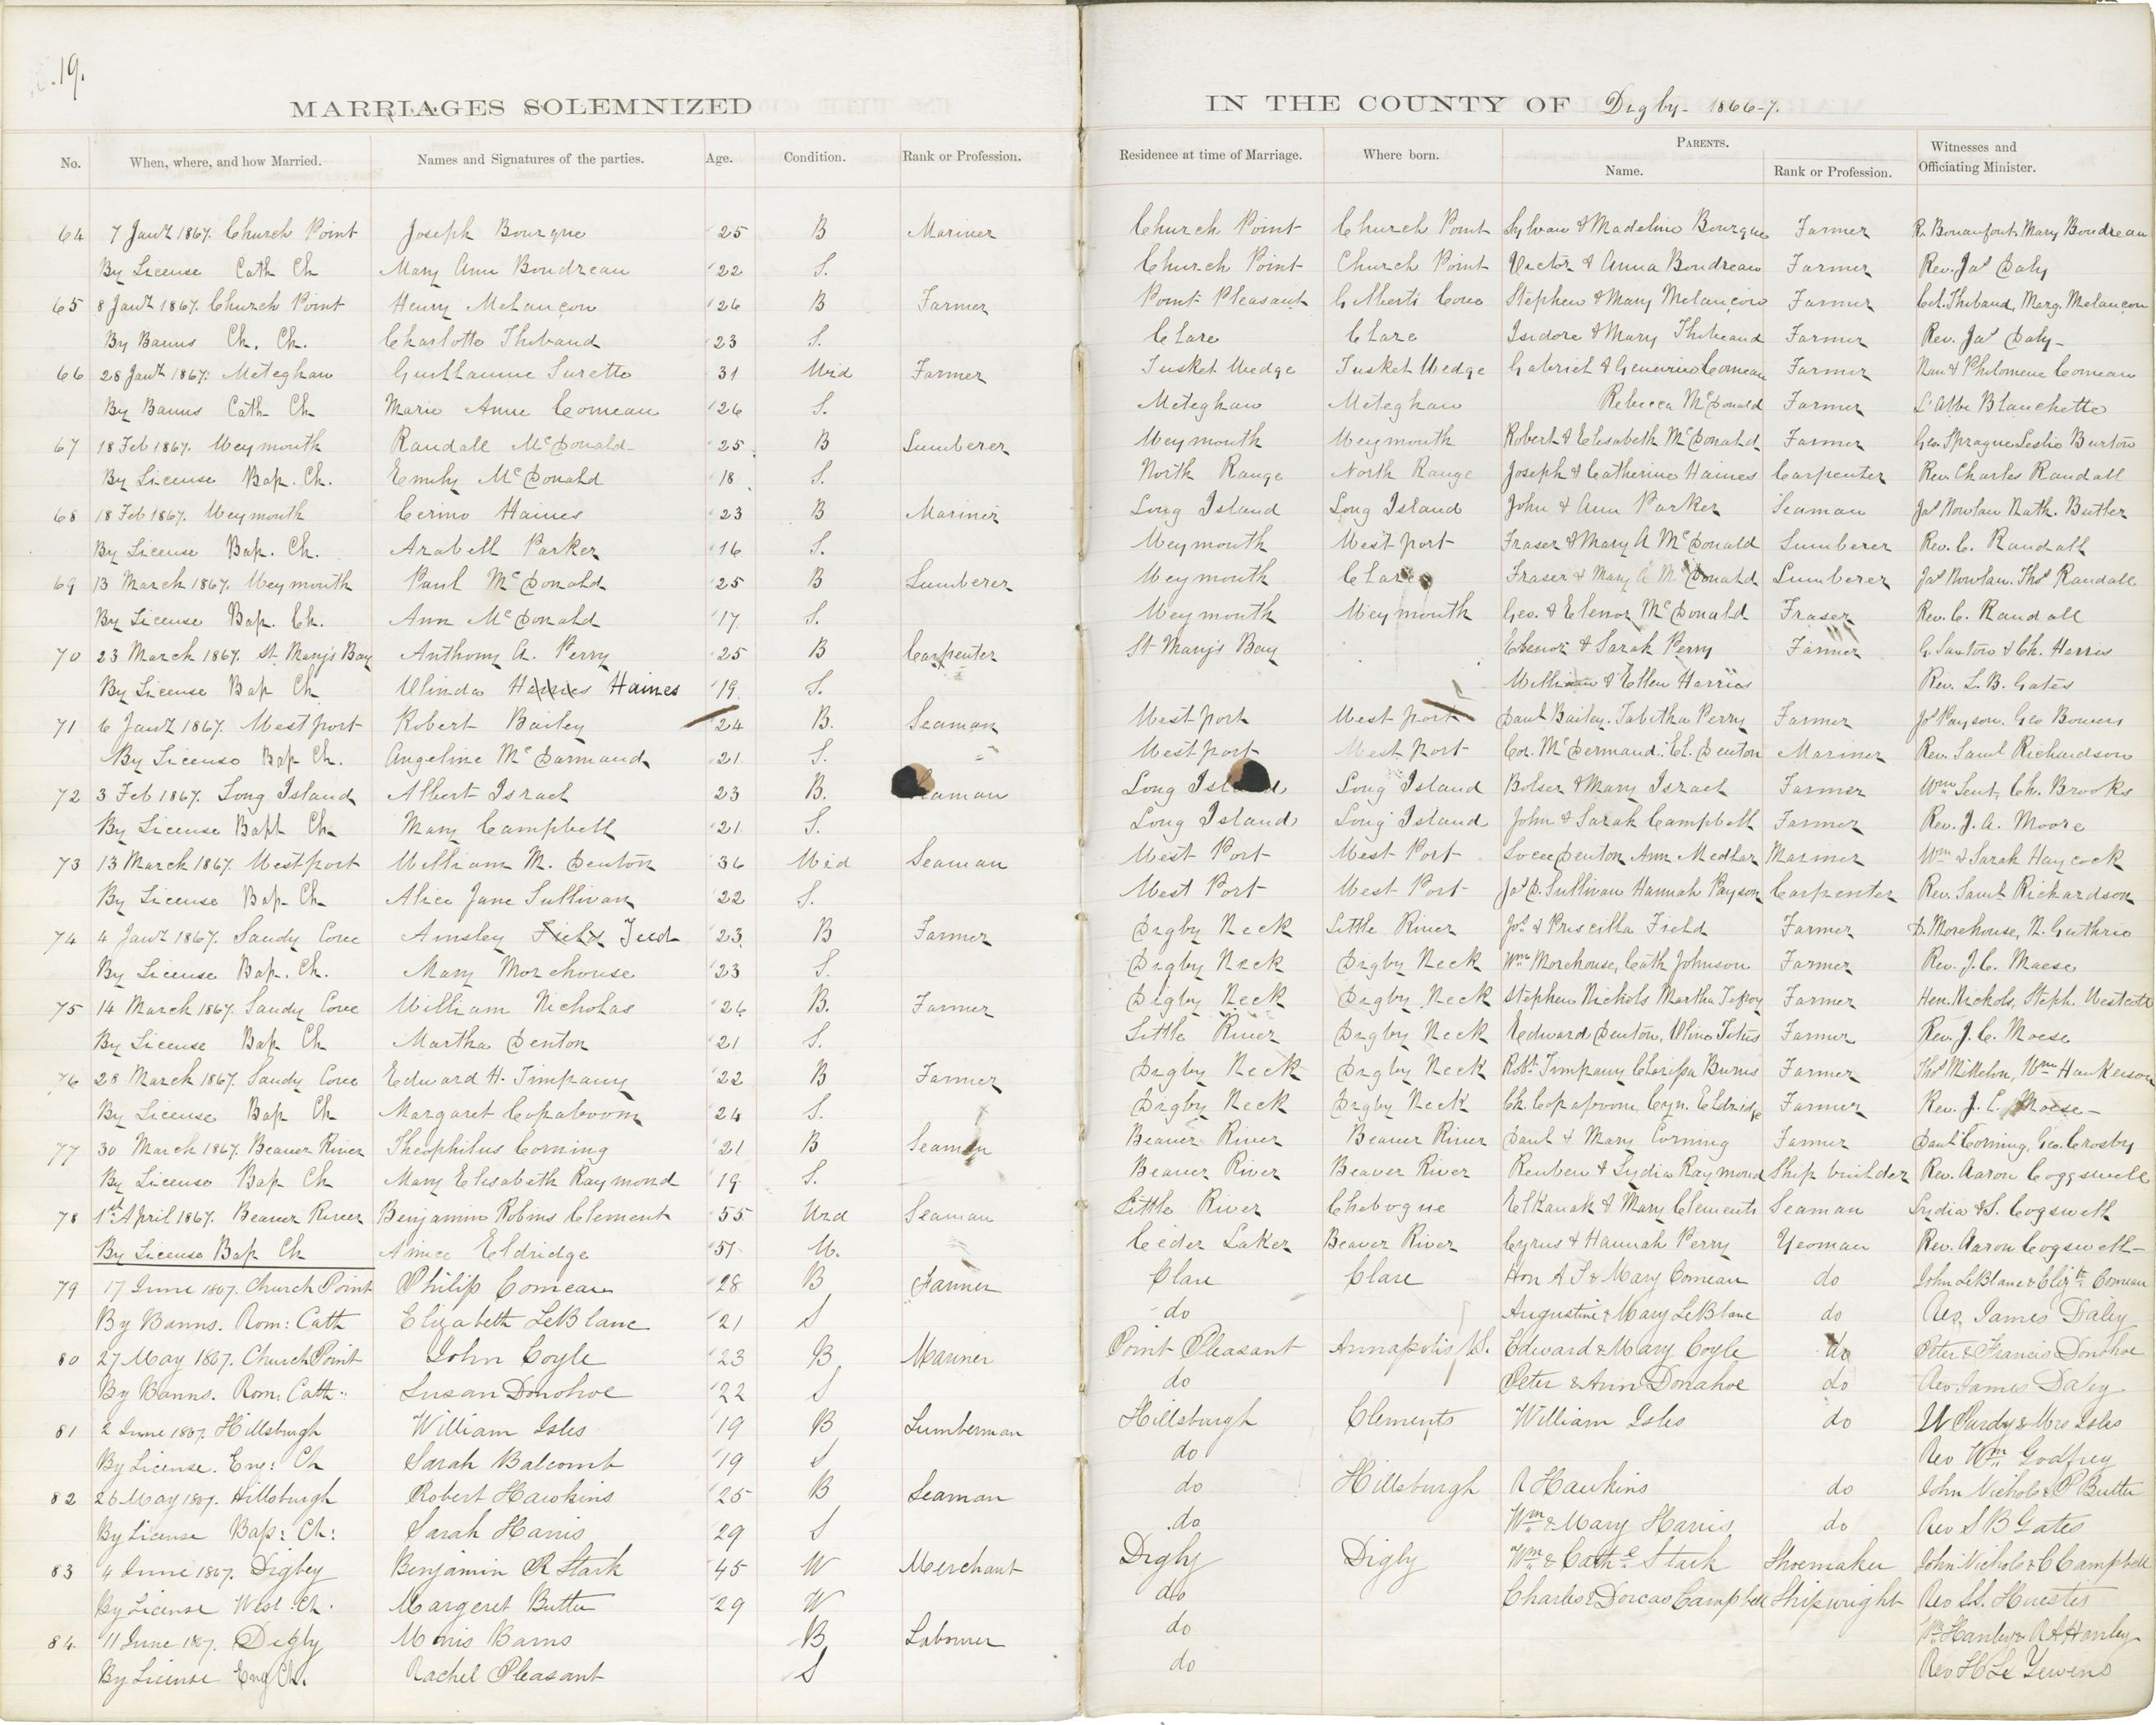 19.
MARRIAGES SOLEMNIZED IN THE COUNTY OF Digby - 1866-7.
No. When, where, and how Married. Names and Signatures of the parties. Age. Condition. Rank or Profession. Residence at time of Marriage. Where born. Parents. Name. Rank or Profession. Witnesses and Officiating Minister.
64 7 Jany 1867. Church Point Joseph Bourque 25 B Mariner Church Point Church Point Sylvan & Madeline Bourque Farmer R. Bonaufont, Mary Boudreau
By License Cath Ch Mary Ann Boudreau 22 S. Church Point Church Point Victor & Anna Boudreau Farmer Rev. Jas Daly
65 8 Jany 1867. Church Point Henry Melançon 26 B Farmer Point Pleasant Gilberts Cove Stephen & Mary Melançon Farmer Col. Thibaud, Marg. Melançon
By Banns Ch. Ch. Charlotte Thibaud 23 S. Clare Clare Isidore & Mary Thibeaud Farmer Rev. Jas Daly
66 28 Jany 1867. Meteghan Guillaume Surette 31 Wid Farmer Tusket Wedge Tusket Wedge Gabriel & Genevive Comeau Farmer Nan & Philomene Comeau
By Banns Cath Ch Marie Anne Comeau 26 S. Meteghan Meteghan Rebecca McDonald Farmer L'Abbe Blanchette
67 18 Feb 1867. Weymouth Randall McDonald 25 B Lumberer Weymouth Weymouth Robert & Elisabeth McDonald Farmer Geo. Sprague Leslie Burton
By License Bap. Ch. Emily McDonald 18 S. North Range North Range Joseph & Catherine Haines Carpenter Rev. Charles Randall
68 18 Feb 1867. Weymouth Cerino Haines 23 B Mariner Long Island Long Island John & Ann Parker Seaman Jas Nowlan Nath. Butler
By License Bap. Ch. Arabell Parker 16 S. Weymouth Westport Fraser & Mary A McDonald Lumberer Rev. C. Randall
69 13 March 1867. Weymouth Paul McDonald 25 B Lumberer Weymouth Clare Fraser & Mary A McDonald Lumberer Jas Nowlan. Thos Randall
By License Bap. Ch. Ann McDonald 17 S. Weymouth Weymouth Geo. & Elenor McDonald Fraser Rev. C. Randall
70 23 March 1867. St. Mary's Bay Anthony A. Perry 25 B Carpenter St Mary's Bay Ebenor & Sarah Perry Farmer G. Saxton & Ch. Harris
By License Bap Ch Ulinda Harries Haines 19 S. William & Ellen Harries Rev. L. B. Gates
71 6 Jany 1867. Westport Robert Bailey 24 B. Seaman Westport Westport Paul Bailey. Tabitha Perry Farmer Js Payson. Geo Bowers
By License Bap Ch. Angeline McDarmand 21 S. Westport Westport Cor. McDermand. El. Denton Mariner Rev. Saml Richardson
72 3 Feb 1867. Long Island Albert Israel 23 B. Seaman Long Island Long Island Bolser & Mary Israel Farmer Wm Sent, Ch. Brooks
By License Bapt Ch Mary Campbell 21 S. Long Island Long Island John & Sarah Campbell Farmer Rev. J. A. Moore
73 13 March 1867. Westport William M. Denton 36 Wid Seaman West Port West Port Denton Ann Medlar Mariner Wm & Sarah Haycock
By License Bap. Ch Alice Jane Sullivan 22 S. West Port West Port Jas D. Sullivan Hannah Payson Carpenter Rev. Saml Richardson
74 4 Jany 1867. Sandy Cove Ainsley Field Teed 23 B Farmer Digby Neck Little River Jos. & Priscilla Field Farmer D. Morehouse, N. Guthrie
By License Bap. Ch. Mary Morehouse 23 S. Digby Neck Digby Neck Wm Morehouse, Cath Johnson Farmer Rev. J. C. Maese
75 14 March 1867. Sandy Cove William Nicholas 26 B. Farmer Digby Neck Digby Neck Stephen Nichols Martha Farmer Hen. Nichols, Steph. Westcott
By License Bap Ch Martha Denton 21 S. Little River Digby Neck Edward Denton, Oline Titus Farmer Rev. J. C. Moese
76 28 March 1867. Sandy Cove Edward H. Timpany 22 B Farmer Digby Neck Digby Neck Robt Timpany Clarissa Burns Farmer Thos Millehn, Wm Hankerson
By License Bap Ch Margaret Copaboom 24 S. Digby Neck Digby Neck Ch. Copaboom, Cyn. Eldridge Farmer Rev. J. C. Moese
77 30 March 1867. Beaver River Theophilus Corning 21 B Seaman Beaver River Beaver River Danl & Mary Corning Farmer Danl Corning, Geo. Crosby
By License Bap Ch Mary Elisabeth Raymond 19 S. Beaver River Beaver River Reuben & Lydia Raymond Ship builder Rev. Aaron Coggswell
78 1st April 1867. Beaver River Benjamin Robins Clement 55 Wid Seaman Little River Chebogue Elkanah & Mary Clements Seaman Lydia & S. Cogswell
By License Bap Ch Aimee Eldridge 51 W. Ceder Laker Beaver River Cyrus & Hannah Perry Yeoman Rev. Aaron Cogswell
79 17 June 1867. Church Point Philip Comeau 28 B Farmer Clare Clare Hon A F & Mary Comeau do John LeBlanc & Elizth Comeau
By Banns. Rom: Cath Elizabeth LeBlanc 21 S do Augustine & Mary LeBlanc do Rev. James Daley
80 27 May 1867. Church Point John Coyle 23 B Mariner Point Pleasant Annapolis Edward & Mary Coyle do Peter & Francis Donohoe
By Banns. Rom: Cath: Susan Donohoe 22 S do Peter & Ann Donahoe do Rev James Daley
81 2 June 1867. Hillsburgh William Isles 19 B Lumberman Hillsburgh Clements William Isles do W Purdy & Mrs Isles
By License. Eng: Ch Sarah Balcomb 19 S do Rev Wm Godfrey
82 26 May 1867. Hillsburgh Robert Hawkins 25 B Seaman do Hillsburgh R Hawkins do John Nichols & P Butter
By License Bap: Ch: Sarah Harris 29 S do Wm & Mary Harris do Rev S B Gates
83 4 June 1867. Digbey Benjamin R Stark 45 W Merchant Digby Digby Wm & Cathe Stark Shoemaker John Nichols & C Campbell
By License Wesl. Ch. Margeret Butter 29 W do Charles & Dorcas Campbell Shipwright Rev S. Huestis
84 11 June 1867. Digby Morris Barns B Labourer do Wm Hanley & R A Hanley
By License Eng Ch. Rachel Pleasant S do Rev H Le Yewens